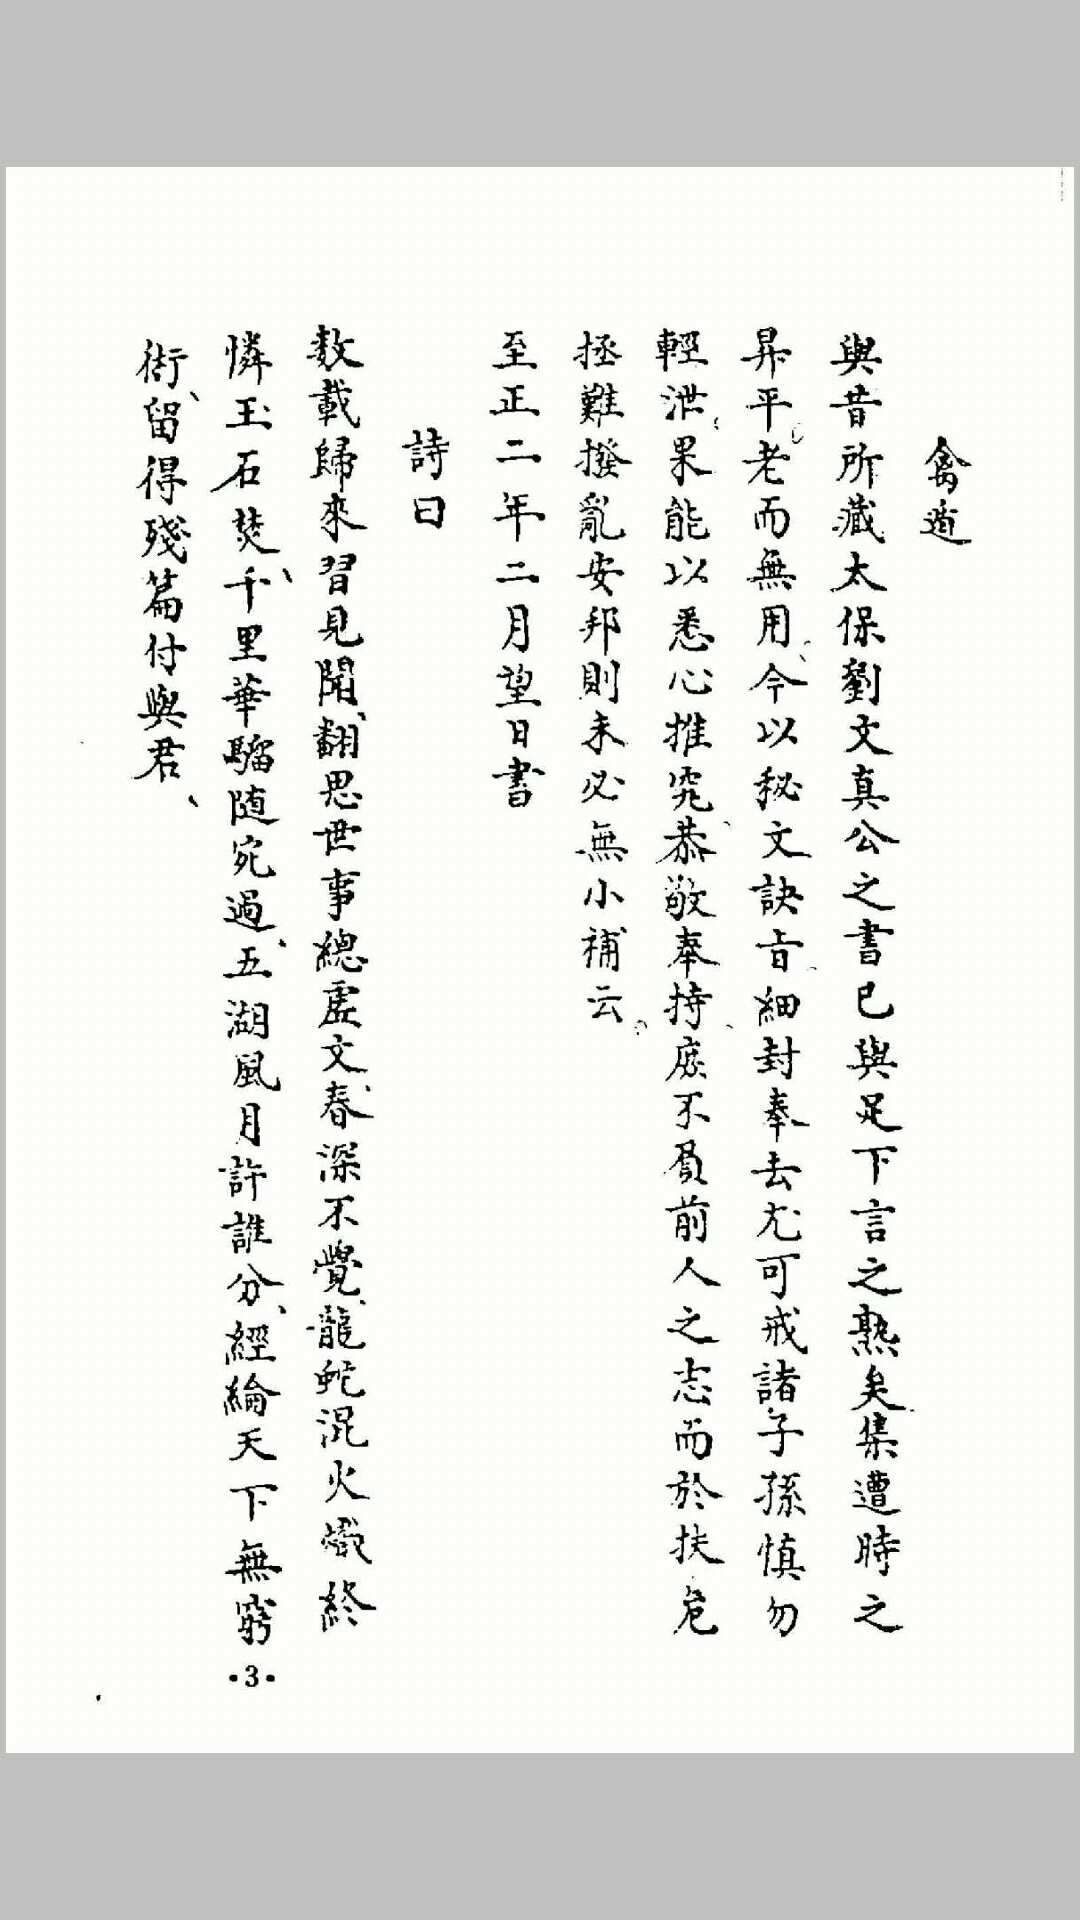 禽遁
與昔所藏太保劉文真公之書已與足下言之熟矣集遭時之
昇平老而無用今以秘文訣旨細封奉去尤可戒諸子孫慎勿
輕泄果能以悉心推究恭敬奉持庶不負前人之志而於扶危
拯難撥亂安邦則未必無小補云
至正二年二月望日書
詩曰
数載歸來習見聞、翻思世事總虛文、春深不覺、龍蛇混火熾終
憐玉石焚、千里華騮随宛過、五湖風月許誰分、經綸天下無窮
術、留得殘篇付與君、
·3·